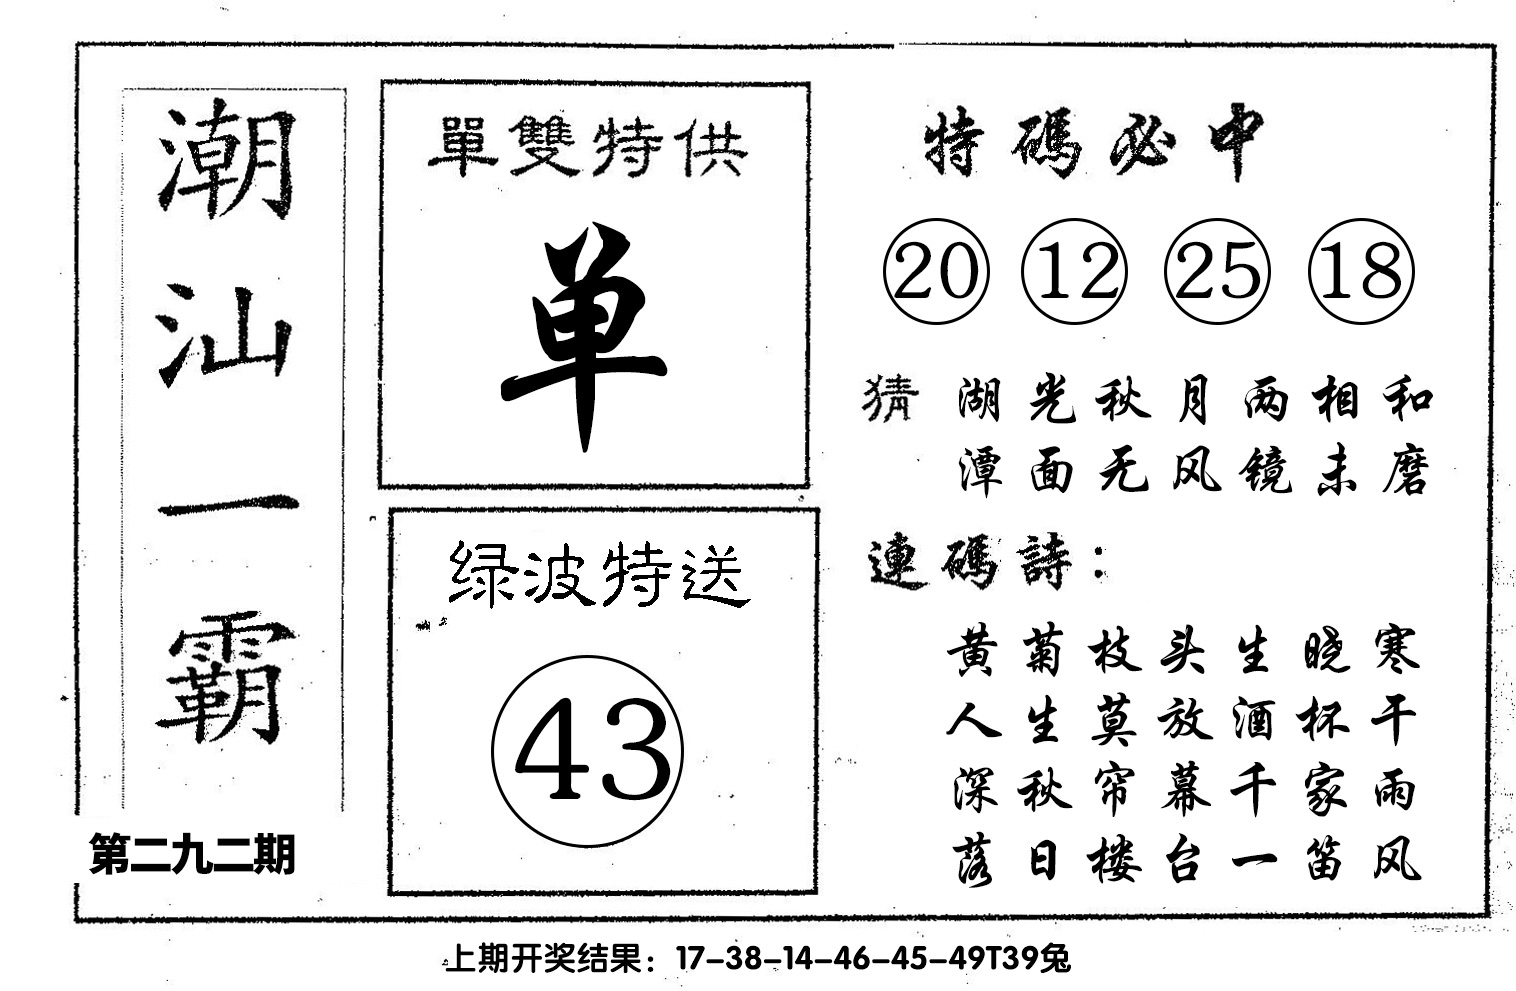 潮汕一霸
第二九二期
單雙特供
单
绿波特送
43
特碼必中
20 12 25 18
猜 湖光秋月两相和
潭面无风镜未磨
連碼詩：
黄菊枝头生晓寒
人生莫放酒杯干
深秋帘幕千家雨
落日楼台一笛风
上期开奖结果：17-38-14-46-45-49T39兔